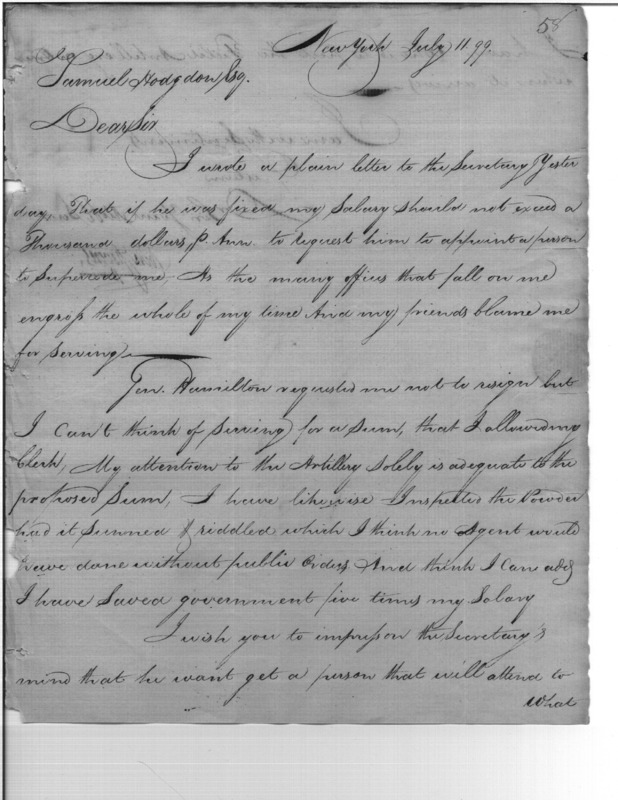 58
New York July 11 99.
Samuel Hodgdon, Esq.
Dear Sir
I wrote a plain letter to the Secretary Yester
day, That if he was fixed my Salary should not exceed a
Thousand dollars P. Ann. to request him to appoint a person
to Supercede me, As the many offices that fall on me
engross the whole of my time And my friends blame me
for Serving
Gen. Hamilton requested me not to resign but
I can't think of Serving for a Sum, that I allowed my
Clerk, My attention to the Artillery Solely is adequate to the
proposed Sum, I have likewise Inspected the Powder
had it Sunned & riddled which I think no Agent would
have done without public Orders And think I Can add
I have Saved government five times my Salary
I wish you to impress on the Secretary's
mind that he want get a person that will attend to
What